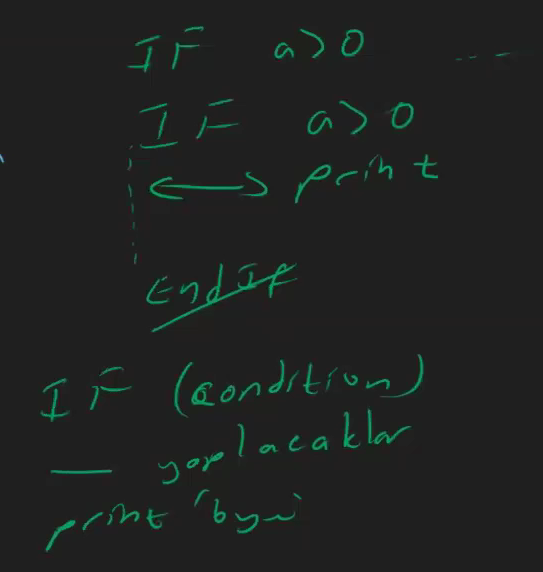 IF a>0
IF a>0
print
EndIf
IF (condition)
yapılacaklar
print 'bye